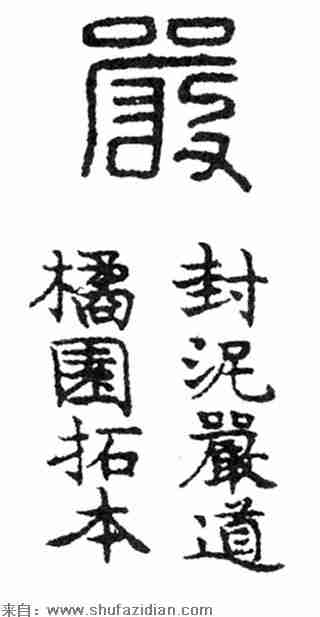 嚴
封泥嚴道
橘園拓本
来自：www.shufazidian.com